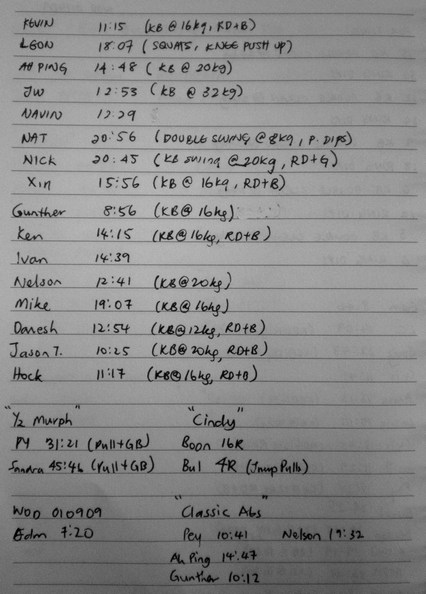 KEVIN 11:15 (KB @ 16kg, RD+B)
LEON 18:07 (SQUATS, KNEE PUSH UP)
AH PING 14:48 (KB @ 20kg)
JW 12:53 (KB @ 32kg)
NAVIN 12:29
NAT 20:56 (DOUBLE SWING @ 8kg, P. DIPS)
NICK 20:45 (KB swing @ 20kg, RD+G)
XIN 15:56 (KB @ 16kg, RD+B)
Gunther 8:56 (KB@16kg)
Ken 14:15 (KB@16kg, RD+B)
Ivan 14:39
Nelson 12:41 (KB@20kg)
Mike 19:07 (KB@16kg)
Danesh 12:54 (KB@12kg, RD+B)
Jason T. 10:25 (KB@20kg, RD+B)
Hock 11:17 (KB@16kg, RD+B)
"1/2 Murph" "Cindy"
PY 31:21 (Pull+GB) Boon 16R
Sandra 45:46 (Pull+GB) Bul 4R (Jump Pullb)
WOD 010909 "Classic Abs"
Edm 7:20 Pey 10:41 Nelson 19:32
Ah Ping 14:47
Gunther 10:12